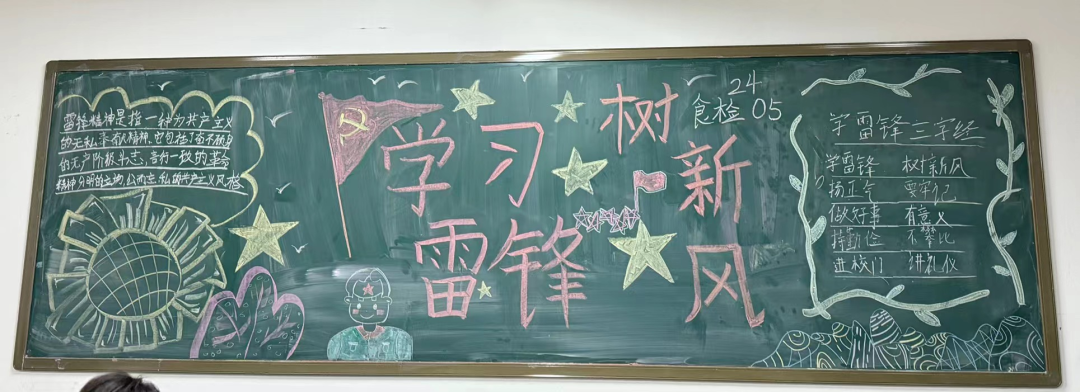 雷锋精神是指一种为共产主义
的无私奉献精神,它包括了奋不顾身
的无产阶级斗志,言行一致的革命
精神分明的立场,公而忘私的共产主义风格
学习
雷锋
树
新
风
24
食检 05
学雷锋三字经
学雷锋 树新风
扬正气 要牢记
做好事 有意义
持勤俭 不攀比
进校门 讲礼仪